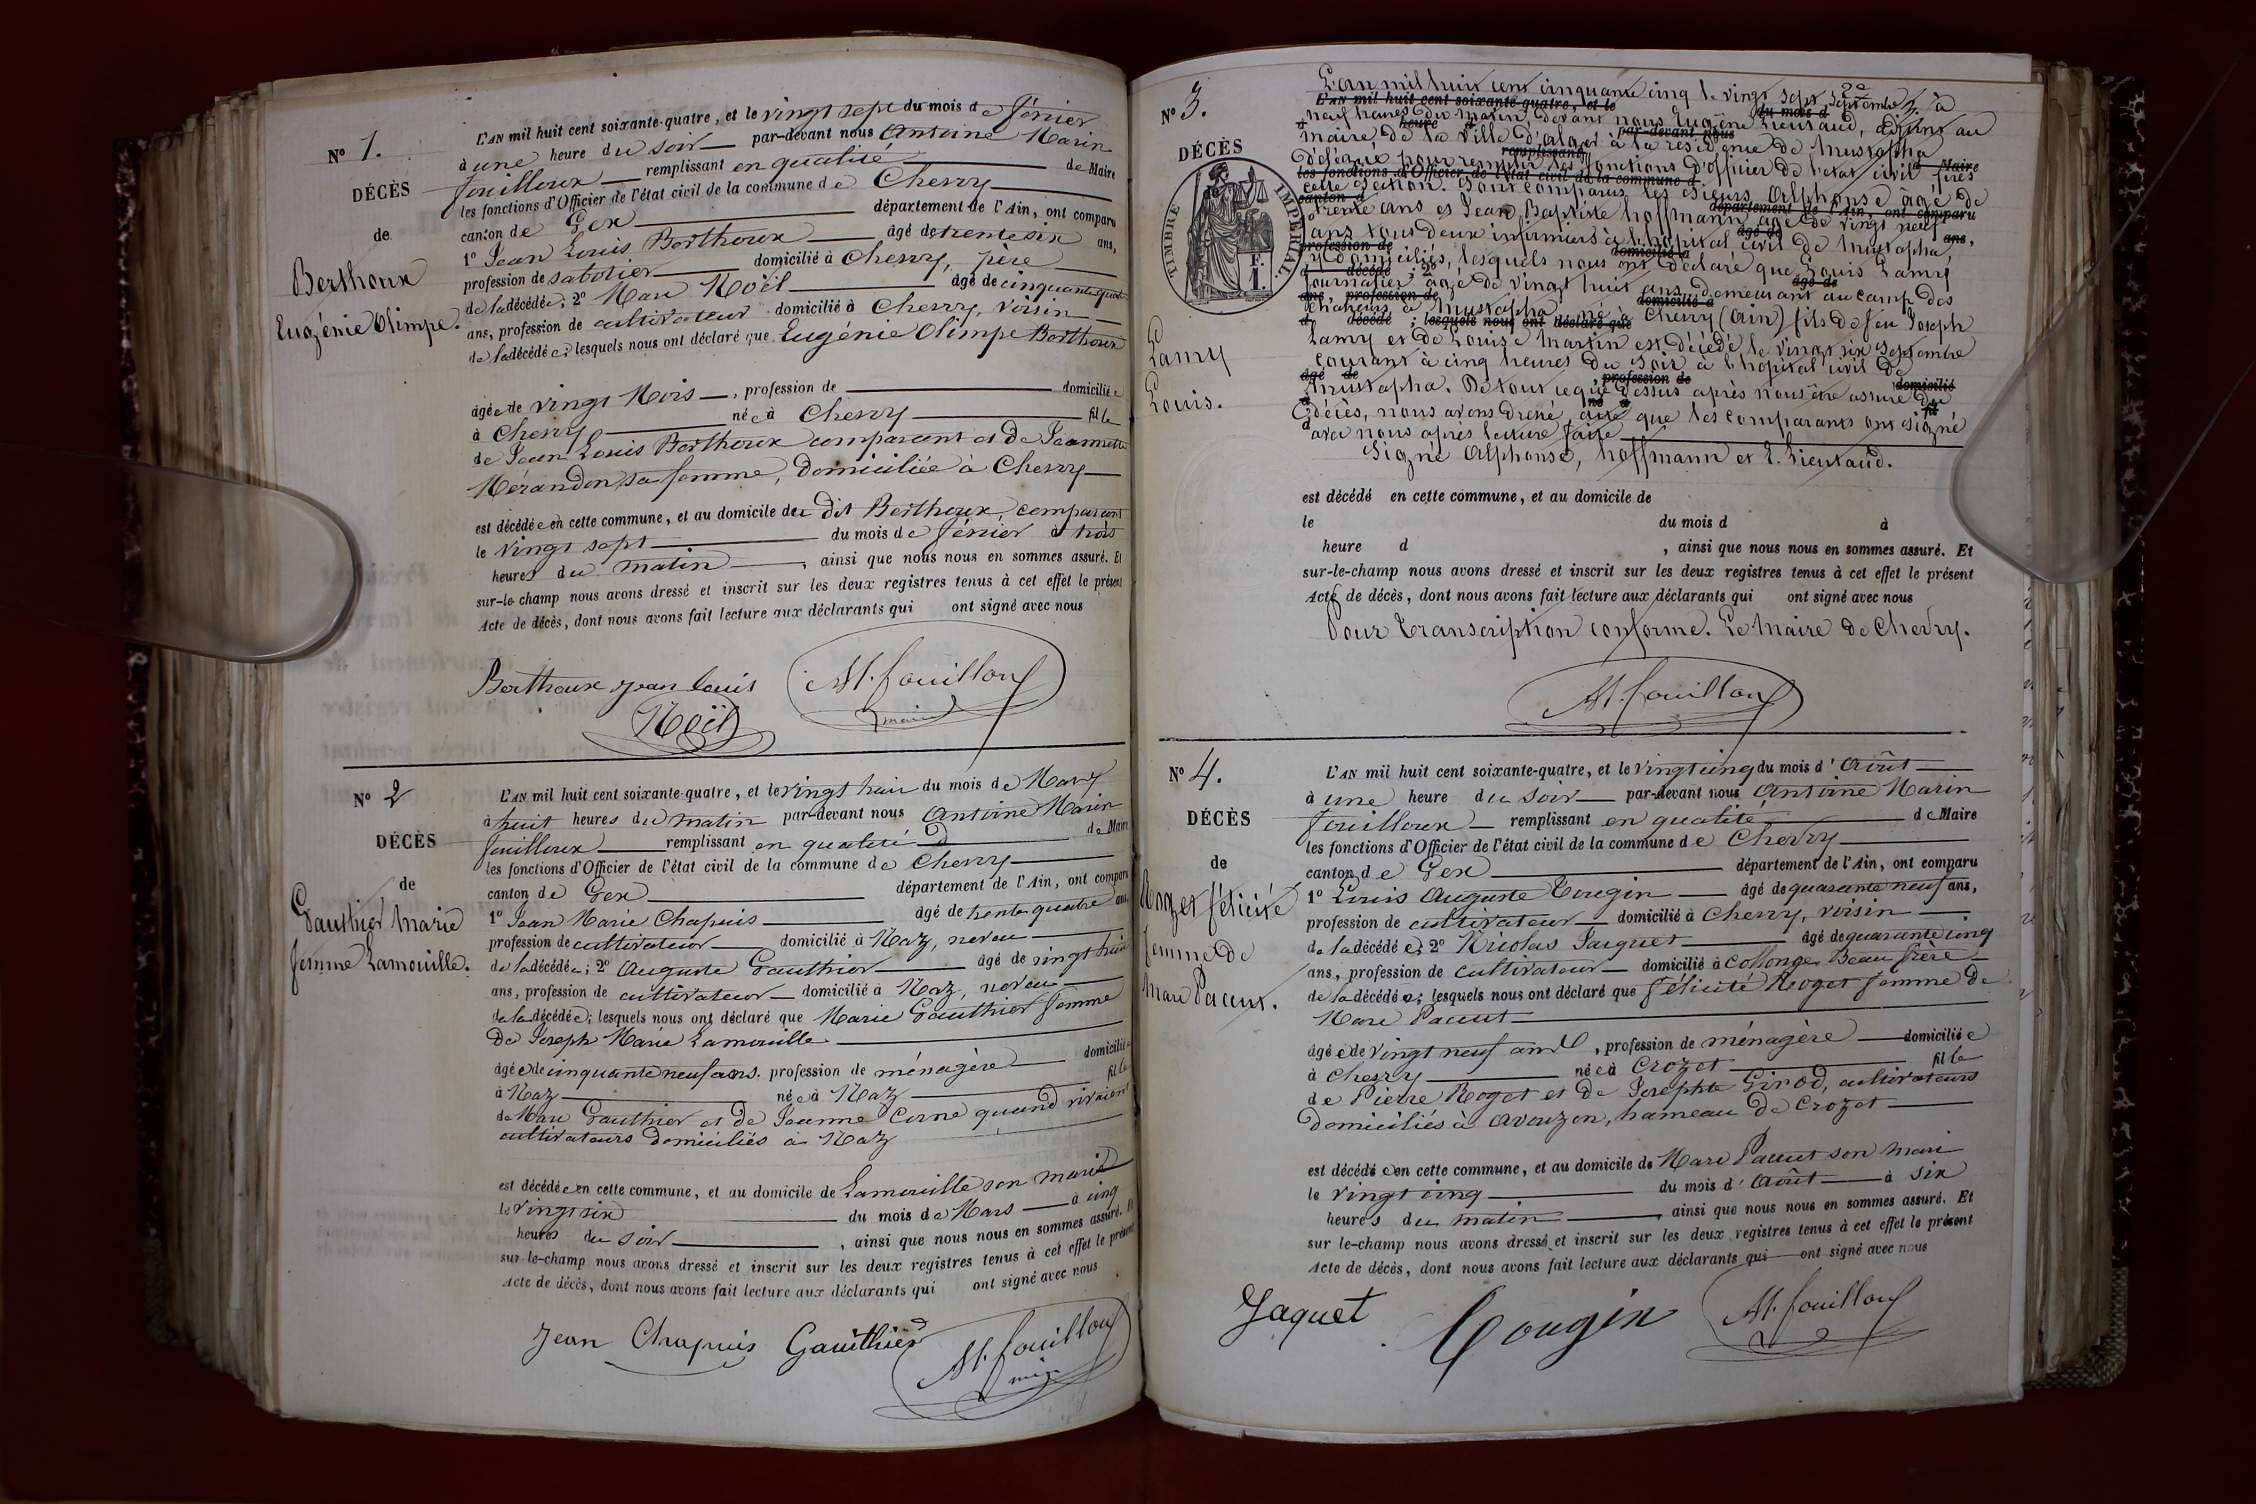 Nº 1.
DÉCÈS
de
Berthoux
Eugénie Olimpe.
L'AN mil huit cent soixante-quatre, et le vingt sept du mois de février
à une heure du soir par-devant nous Antoine Marin
fouilloux remplissant en qualité de Maire
les fonctions d'Officier de l'état civil de la commune de Chevry
canton de Gex département de l'Ain, ont comparu
1º Jean Louis Berthoux âgé de trente six ans,
profession de sabotier domicilié à Chevry, père
de la décédée; 2º Marc Noël âgé de cinquante quatre
ans, profession de cultivateur domicilié à Chevry, voisin
de la décédée; lesquels nous ont déclaré que Eugénie Olimpe Berthoux
âgée de vingt Mois, profession de domiciliée
à Chevry née à Chevry fille
de Jean Louis Berthoux comparant et de Jeannette
Mérandon sa femme, domiciliée à Chevry
est décédée en cette commune, et au domicile du dit Berthoux, comparant
le vingt sept du mois de février à trois
heures du matin, ainsi que nous nous en sommes assuré. Et
sur-le-champ nous avons dressé et inscrit sur les deux registres tenus à cet effet le présent
Acte de décès, dont nous avons fait lecture aux déclarants qui ont signé avec nous
Berthoux jean louis
Noël
M. fouilloux
maire
Nº 2
DÉCÈS
de
Gauthier Marie
femme Lamouille.
L'AN mil huit cent soixante-quatre, et le vingt huit du mois de Mars
à huit heures du matin par-devant nous Antoine Marin
fouilloux remplissant en qualité de Maire
les fonctions d'Officier de l'état civil de la commune de Chevry
canton de Gex département de l'Ain, ont comparu
1º Jean Marie Chapuis âgé de trente quatre ans,
profession de cultivateur domicilié à Naz, neveu
de la décédée; 2º Auguste Gauthier âgé de vingt huit
ans, profession de cultivateur domicilié à Naz, neveu
de la décédée; lesquels nous ont déclaré que Marie Gauthier femme
de Joseph Marie Lamouille
âgée de cinquante neuf ans, profession de ménagère domiciliée
à Naz née à Naz fille
de Marc Gauthier et de Jeanne Corne quand vivaient
cultivateurs domiciliés à Naz
est décédée en cette commune, et au domicile de Lamouille son mari
le vingt six du mois de Mars à cinq
heures du soir, ainsi que nous nous en sommes assuré. Et
sur-le-champ nous avons dressé et inscrit sur les deux registres tenus à cet effet le présent
Acte de décès, dont nous avons fait lecture aux déclarants qui ont signé avec nous
Jean Chapuis Gauthier
M. fouilloux
Nº 3.
DÉCÈS
TIMBRE IMPÉRIAL.
F.
1.
Lamy
Louis.
L'an mil huit cent cinquante cinq le vingt sept Septembre à
neuf heures du matin, devant nous Eugène Lieutaud, adjoint au
maire de la ville d'alger à la résidence de Mustapha
délégué pour remplir les fonctions d'officier de l'état civil près
cette section. Sont comparus les sieurs Alphonse âgé de
trente ans et Jean Baptiste hoffmann âgé de vingt neuf
ans tous deux infirmiers à l'hôpital civil de Mustapha
y domiciliés, lesquels nous ont déclaré que Louis Lamy
journalier âgé de vingt huit ans, demeurant au camp des
chasseurs à Mustapha né à Chevry (Ain) fils de feu Joseph
Lamy et de Louise Martin est décédé le vingt six septembre
courant à cinq heures du soir à l'hôpital civil de
Mustapha. De tout ce que dessus après nous être assuré du
décès, nous avons dressé, acte que les comparants ont signé
avec nous après lecture faite
Signé Alphonse, hoffmann et E. Lieutaud.
est décédé en cette commune, et au domicile de
le du mois d à
heure d , ainsi que nous nous en sommes assuré. Et
sur-le-champ nous avons dressé et inscrit sur les deux registres tenus à cet effet le présent
Acte de décès, dont nous avons fait lecture aux déclarants qui ont signé avec nous
Pour transcription conforme. Le Maire de Chevry.
M. fouilloux
Nº 4.
DÉCÈS
de
Roget félicité
femme de
Marc Paccut.
L'AN mil huit cent soixante-quatre, et le vingt cinq du mois d'Août
à une heure du soir par-devant nous Antoine Marin
fouilloux remplissant en qualité de Maire
les fonctions d'Officier de l'état civil de la commune de Chevry
canton de Gex département de l'Ain, ont comparu
1º Louis Auguste Cougin âgé de quarante neuf ans,
profession de cultivateur domicilié à Chevry, voisin
de la décédée; 2º Nicolas Jaquet âgé de quarante cinq
ans, profession de cultivateur domicilié à Collonge Beau frère
de la décédée; lesquels nous ont déclaré que félicité Roget femme de
Marc Paccut
âgée de vingt neuf ans, profession de ménagère domiciliée
à Chevry née à Crozet fille
de Pierre Roget et de Josephte Girod, cultivateurs
domiciliés à Avouzon, hameau de Crozet
est décédée en cette commune, et au domicile de Marc Paccut son mari
le vingt cinq du mois d'Août à six
heures du matin, ainsi que nous nous en sommes assuré. Et
sur le-champ nous avons dressé et inscrit sur les deux registres tenus à cet effet le présent
Acte de décès, dont nous avons fait lecture aux déclarants qui ont signé avec nous
Jaquet Cougin M. fouilloux